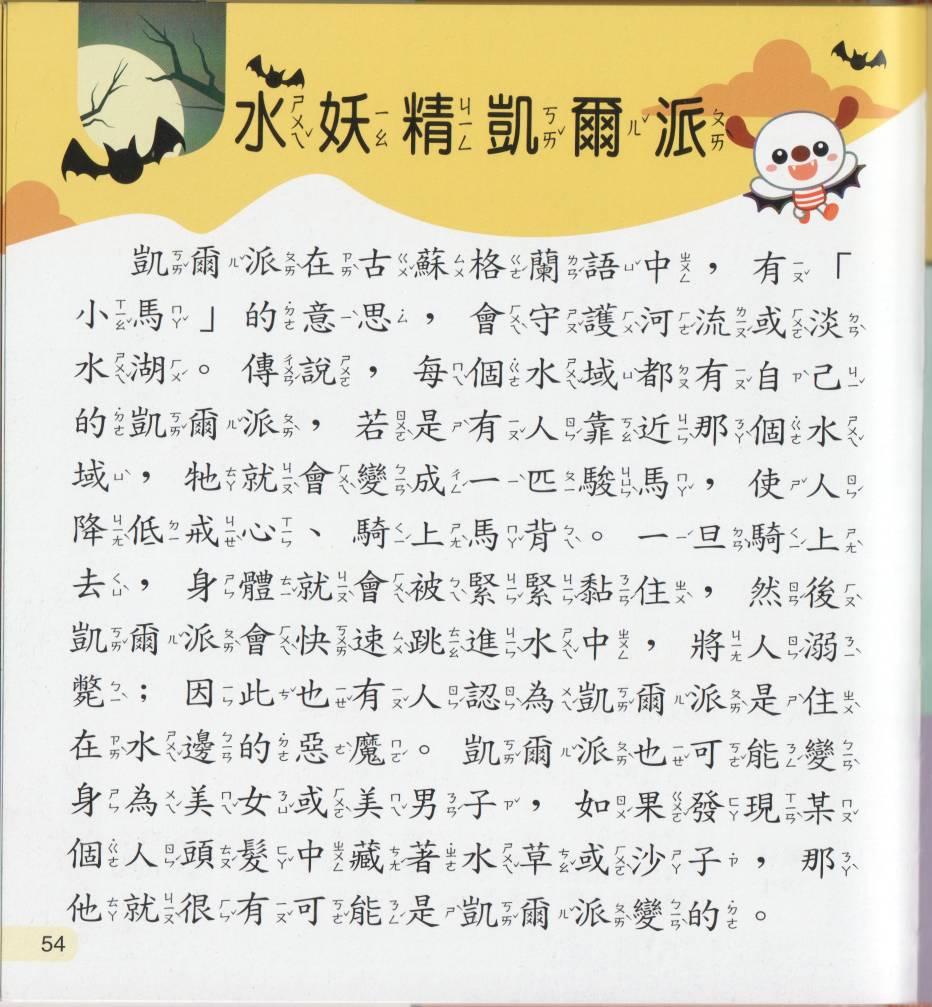 水妖精凱爾派
凱爾派在古蘇格蘭語中，有「
小馬」的意思，會守護河流或淡
水湖。傳說，每個水域都有自己
的凱爾派，若是有人靠近那個水
域，牠就會變成一匹駿馬，使人
降低戒心、騎上馬背。一旦騎上
去，身體就會被緊緊黏住，然後
凱爾派會快速跳進水中，將人溺
斃；因此也有人認為凱爾派是住
在水邊的惡魔。凱爾派也可能變
身為美女或美男子，如果發現某
個人頭髮中藏著水草或沙子，那
他就很有可能是凱爾派變的。
54